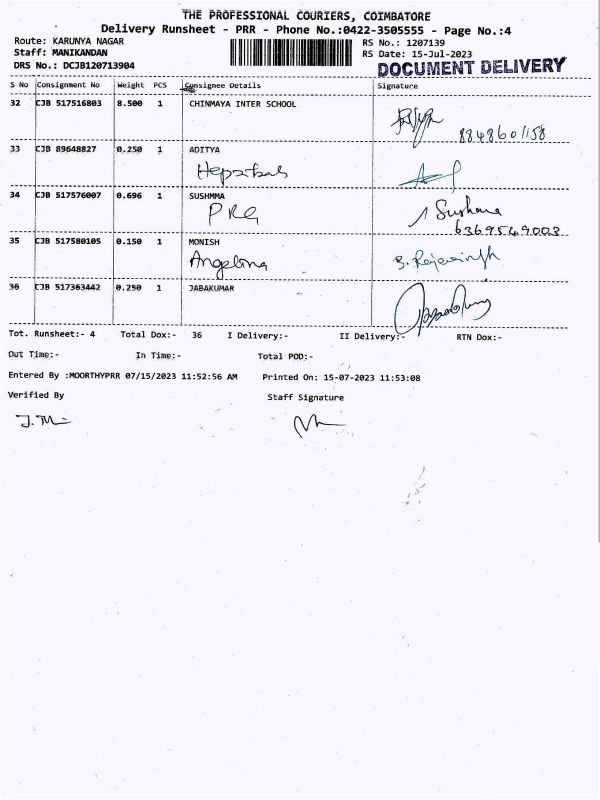 THE PROFESSIONAL COURIERS, COIMBATORE
Delivery Runsheet - PRR - Phone No.:0422-3505555 - Page No.:4
Route: KARUNYA NAGAR RS No.: 1207139
Staff: MANIKANDAN RS Date: 15-Jul-2023
DRS No.: DCJB120713904 DOCUMENT DELIVERY
S No Consignment No Weight PCS Consignee Details Signature
32 CJB 517516803 8.500 1 CHINMAYA INTER SCHOOL
8848601158
33 CJB 89648827 0.250 1 ADITYA
34 CJB 517576007 0.696 1 SUSHMMA
PRG
6369549003
35 CJB 517580105 0.150 1 MONISH
Angelina
36 CJB 517363442 0.250 1 JABAKUMAR
Tot. Runsheet:- 4 Total Dox:- 36 I Delivery:- II Delivery:- RTN Dox:-
Out Time:- In Time:- Total POD:-
Entered By :MOORTHYPRR 07/15/2023 11:52:56 AM Printed On: 15-07-2023 11:53:08
Verified By Staff Signature